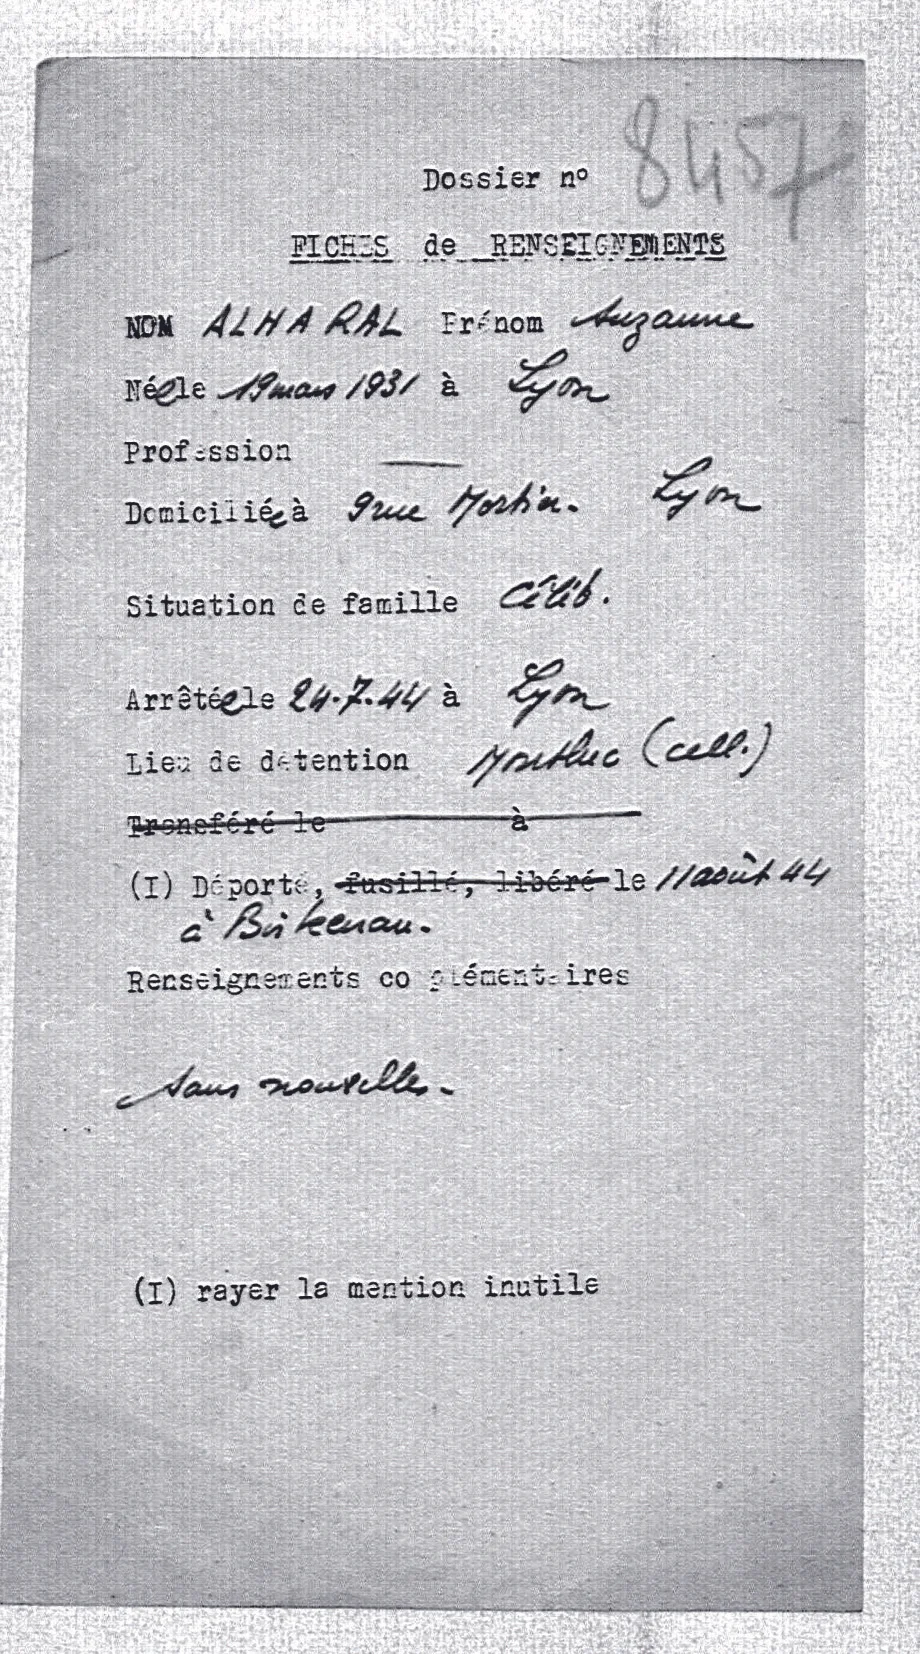 Dossier n° 8457
FICHES de RENSEIGNEMENTS
NOM ALHARAL Prénom Suzanne
Née le 19 mars 1931 à Lyon
Profession —
Domiciliée à 9 rue Mortier. Lyon
Situation de famille Célib.
Arrêtée le 24.7.44 à Lyon
Lieu de détention Montluc (cell.)
Transféré le à
(I) Déporté, fusillé, libéré le 11 août 44
à Birkenau.
Renseignements co plémentaires
Sans nouvelles.
(I) rayer la mention inutile